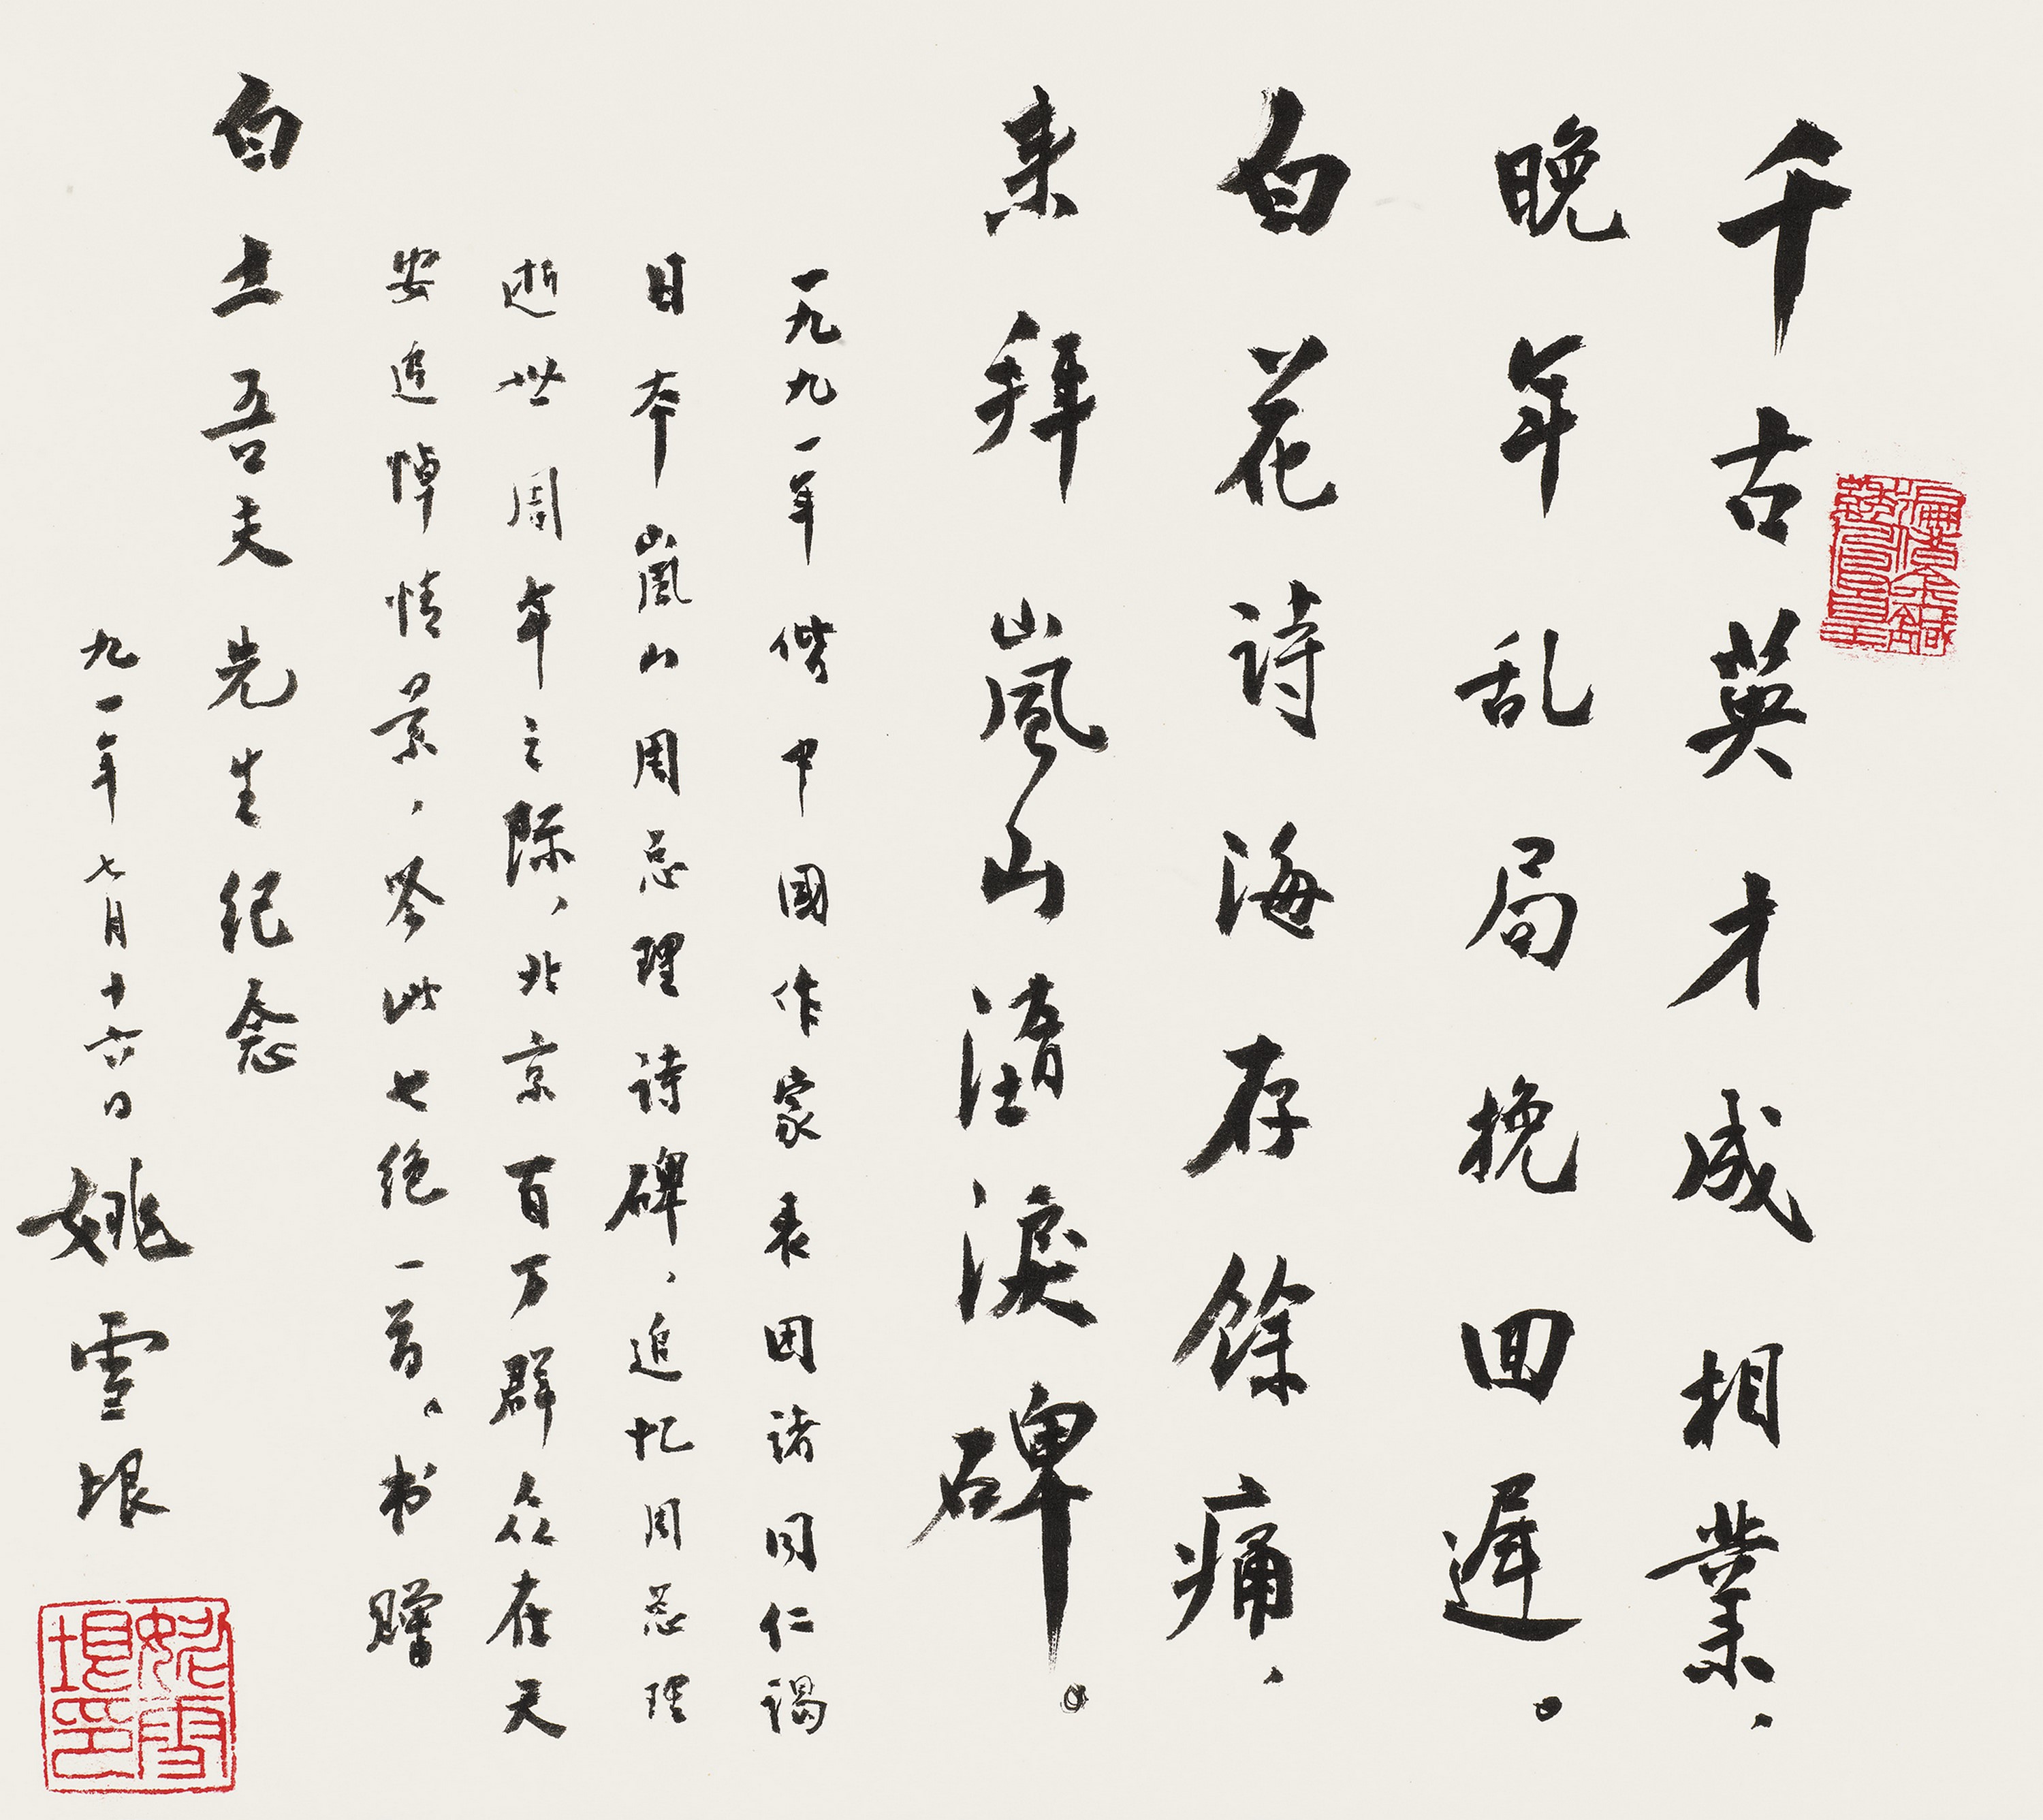 千古英才成相業，
晚年乱局挽回遲。
白花诗海存餘痛，
来拜嵐山墮淚碑。
一九九一年偕中國作家表团诸同仁谒
日本嵐山周总理诗碑，追忆周总理
逝世周年之际，北京百万群众在天
安追悼情景，吟此七绝一首。书赠
白土吾夫先生纪念
九一年七月十六日 姚雪垠
姚雪垠印